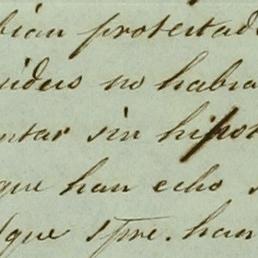 bian protestad
sideso no habia
ntar sin hipot
que han echo s
que spre. han